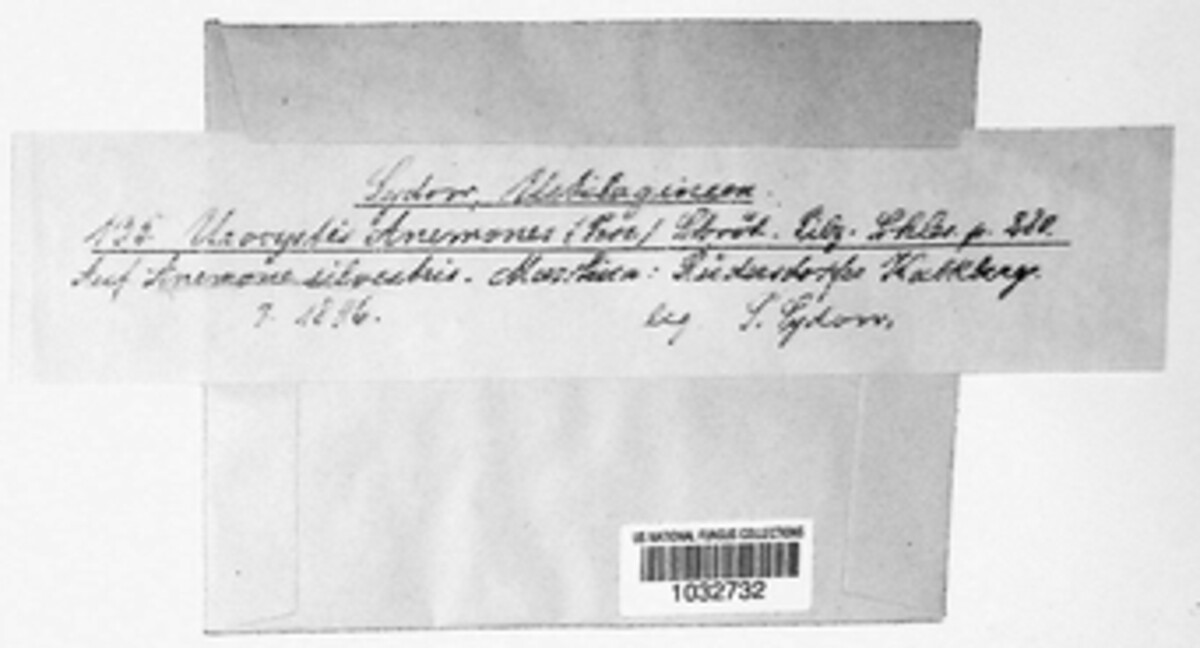 Sydow, Ustilagineen.
Urocystis Anemones (Pers.) Schröt. Pilz. Schles. p. 280.
Auf Anemone silvestris. Rüdersdorfer Kalkberge.
7. 1896. leg. P. Sydow.
US NATIONAL FUNGUS COLLECTIONS
1032732